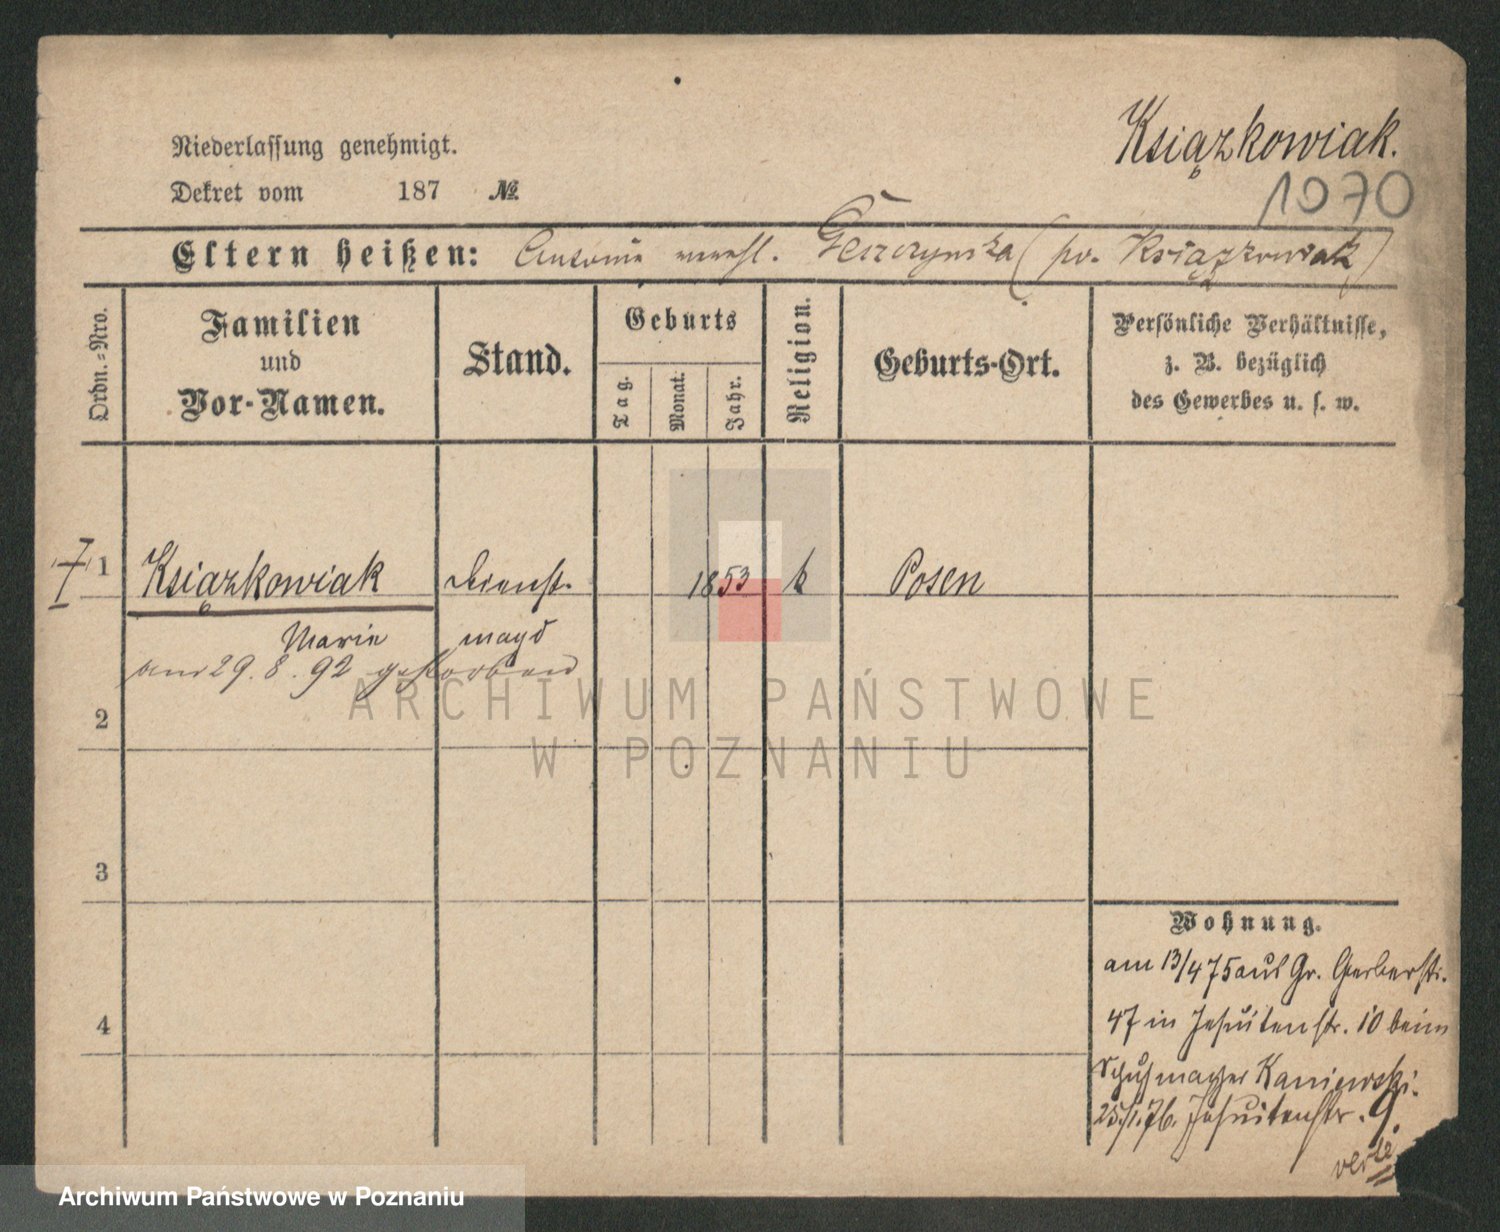 Książkowiak.
Niederlassung genehmigt.
Dekret vom 187 №
1070
Eltern heißen: Antonie verehl. (pr. Książkowiak)
Ordn.-Nro.
Familien und Vor-Namen.
Stand.
Geburts
Tag.
Monat.
Jahr.
Religion.
Geburts-Ort.
Persönliche Verhältnisse,
z. B. bezüglich
des Gewerbes u. s. w.
1 Książkowiak Dienst- 1853 k Posen
Marie magd
am 29. 8. 92 gestorben
2
3
4
Wohnung.
am 13/4 75 aus Gr. Gerberstr.
47 in Jesuitenstr. 10 beim
Schuhmacher Kaniewski.
25./1.76. Jesuitenstr. 9
verte
ARCHIWUM PAŃSTWOWE
W POZNANIU
Archiwum Państwowe w Poznaniu